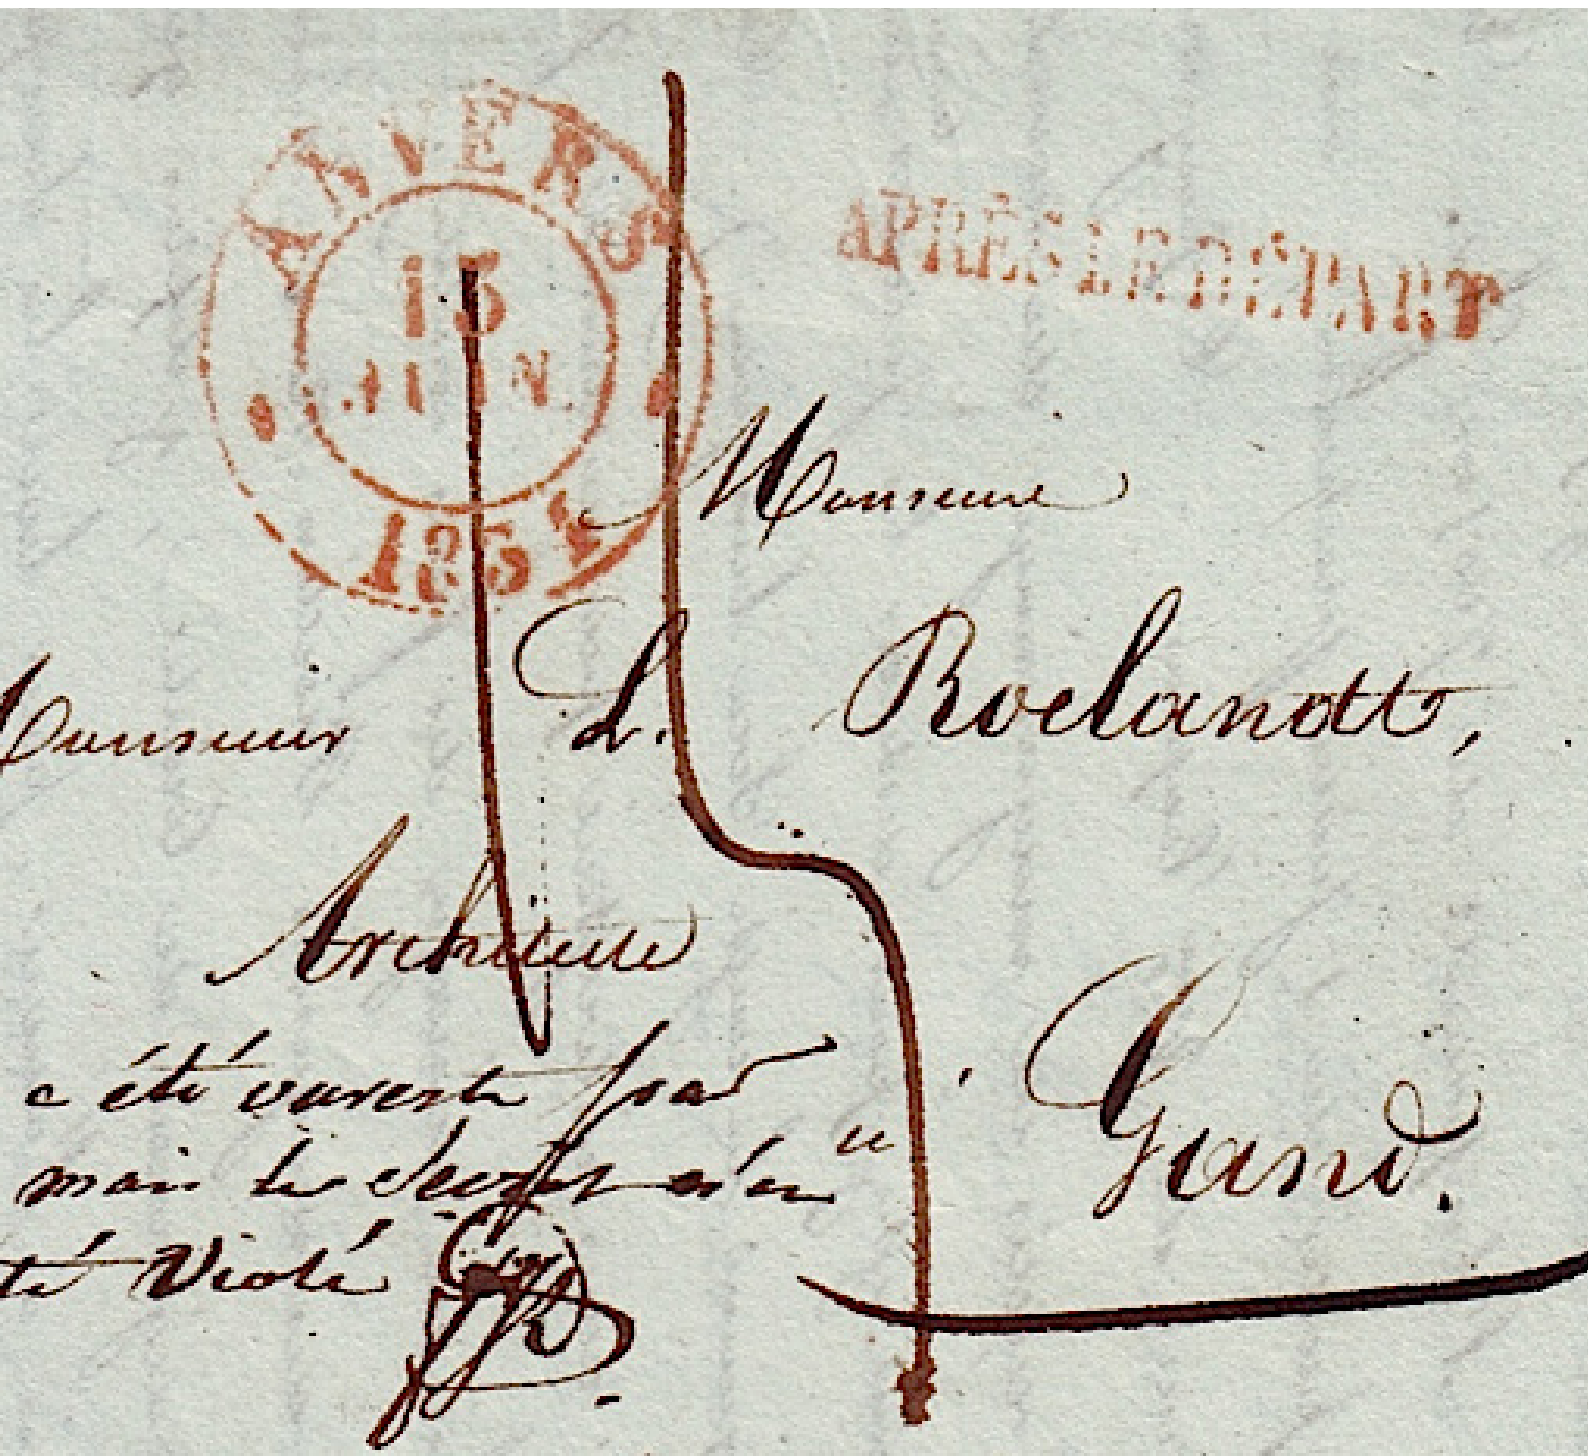 ANVERS
15
JUIN.
1834
APRÈS LE DÉPART
Monsieur
Monsieur L. Roelandt,
Architecte
Gand.
a été ouverte par
mais le Secret n'en
té Violé